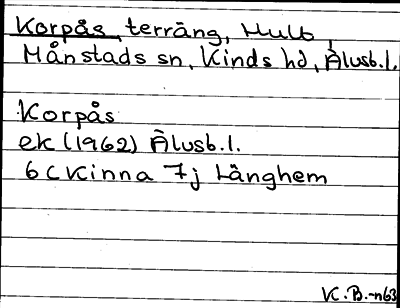 Korpås, terräng, Hulb,
Månstads sn, Kinds hd, Älvsb.l.
Korpås
ek (1962) Älvsb.l.
6 C Kinna 7j Länghem
VC.B.-n63